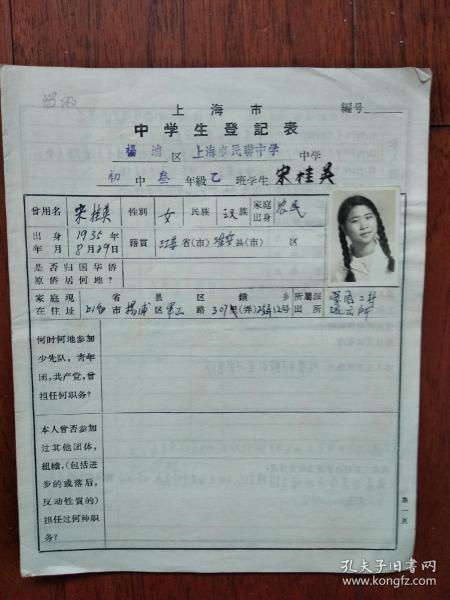 上海市
編号
中学生登記表
楊浦区 上海市民联中学 中学
初中叁年級乙班学生 宋桂英
曾用名 宋桂英 性別 女 民族 汉族 家庭出身 农民
出身年月 1935年8月29日 籍貫 江苏省(市)淮安县(市) 区
是否归国华侨
原侨居何地?
家庭現 省 县 区 鎮 乡 所屬派
在住址 上海市楊浦区 路307弄(弄)
何时何地参加
少先队,青年
团,共产党,曾
担任何职务?
本人曾否参加
过其他团体,
組織,(包括进
步的或落后,
反动性質的)
担任过何种职
务?
第一頁
孔夫子旧书网
www.kongfz.com